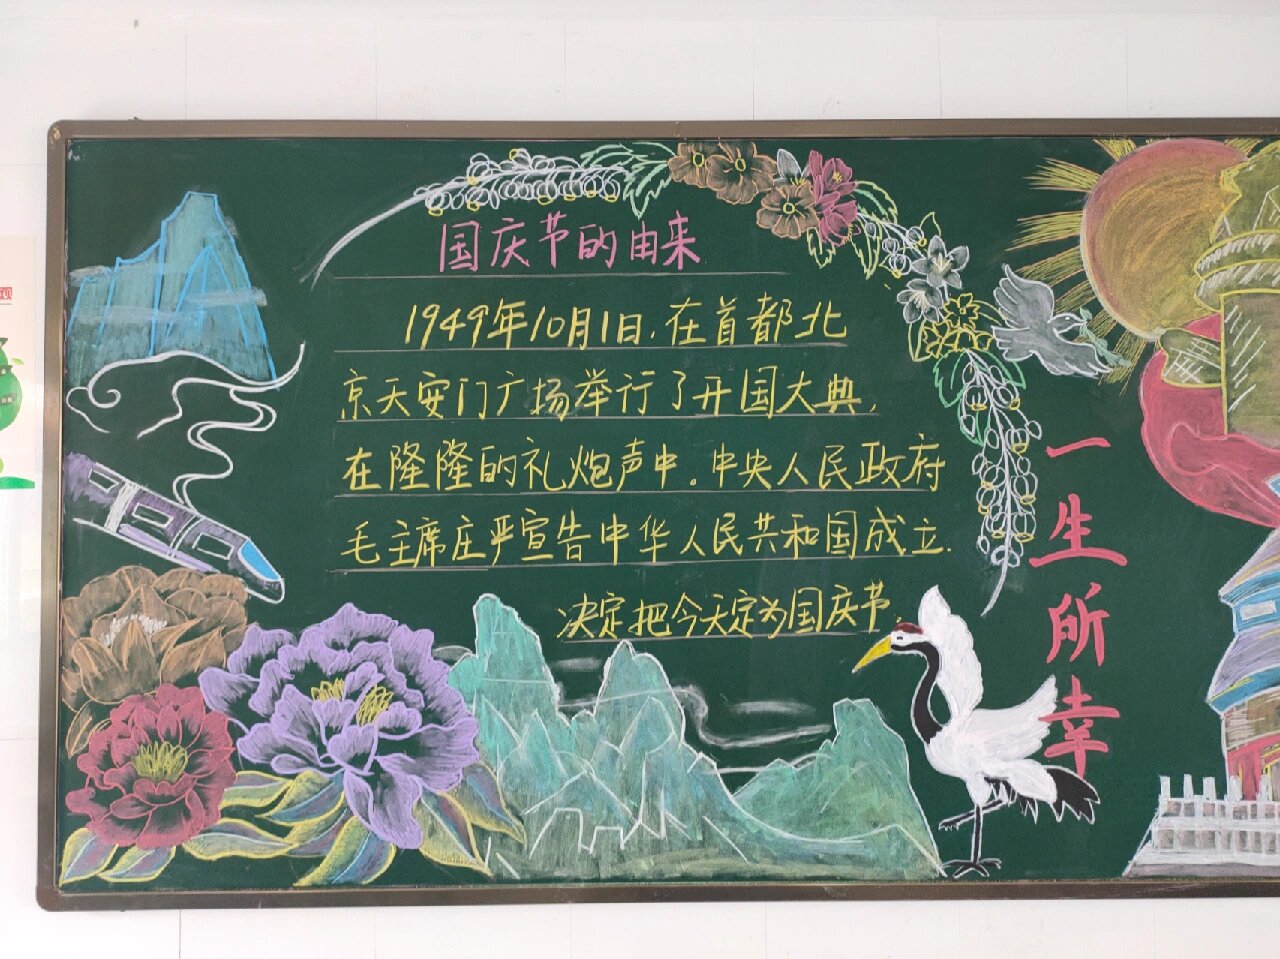 国庆节的由来
1949年10月1日,在首都北
京天安门广场举行了开国大典,
在隆隆的礼炮声中。中央人民政府
毛主席庄严宣告中华人民共和国成立.
决定把今天定为国庆节.
一生所幸